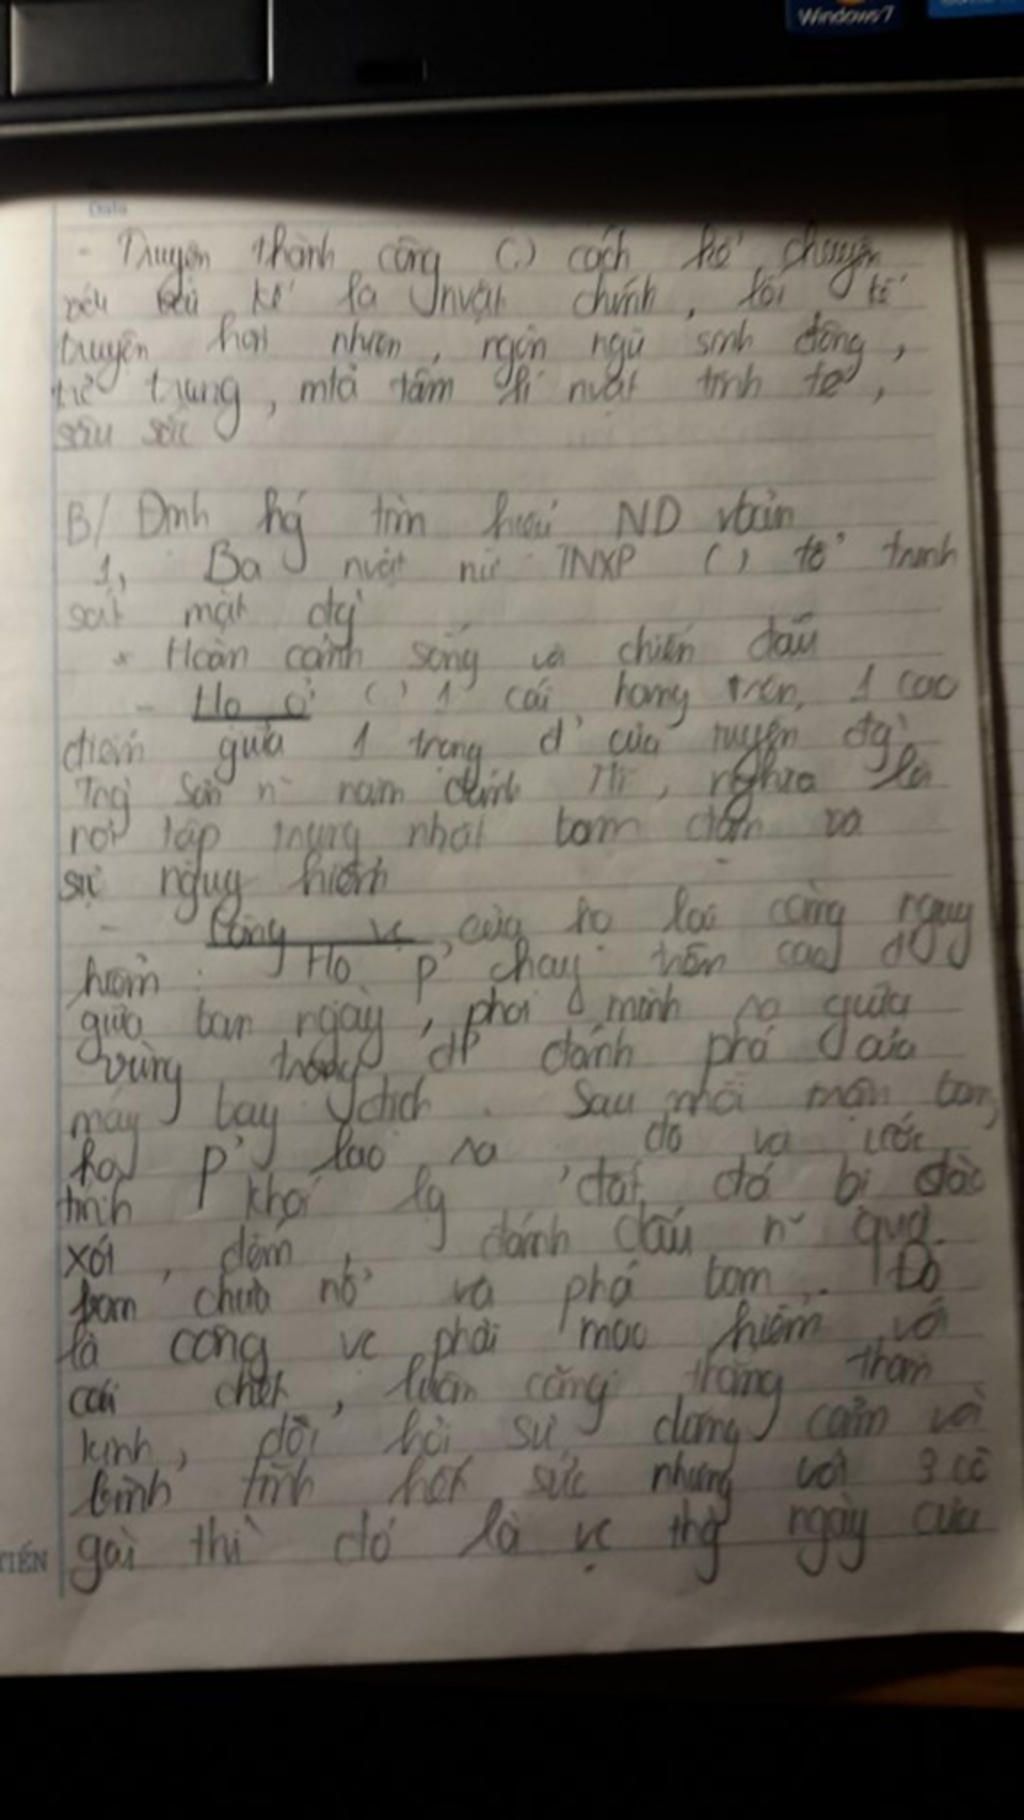 Windows 7
Date
- Truyện thành công () cách kể chuyện
kể là nvật chính, lối kể
truyện hồn nhiên, ngôn ngữ sinh động,
trẻ trung, mtả tâm lí nvật tinh tế,
sâu sắc
B/ Định hg tìm hiểu ND vbản
1, Ba nvật nữ TNXP () tổ trinh
sát mặt đg
* Hoàn cảnh sống và chiến đấu
- Họ ở () 1 cái hang trên 1 cao
điểm giữa 1 trọng đ' của tuyến đg
Trg Sơn n~ năm đánh Mĩ, nghĩa là
nơi tập trung nhất bom đạn và
sự nguy hiểm
- Công vc của họ lại càng nguy
hiểm: Họ p' chạy trên cao đ'
giữa ban ngày, phơi mình ra giữa
vùng trọng đ' đánh phá của
máy bay địch. Sau mỗi trận bom,
họ p' lao ra đo và ước
tính khối lg đất đá bị đào
xới, đếm, đánh dấu n~ quả
bom chưa nổ và phá bom. Đó
là công vc phải mạo hiểm với
cái chết, luôn căng thẳng thần
kinh, đòi hỏi sự dũng cảm và
bình tĩnh hết sức nhưng với 3 cô
gái thì đó là vc thg ngày của
TIẾN